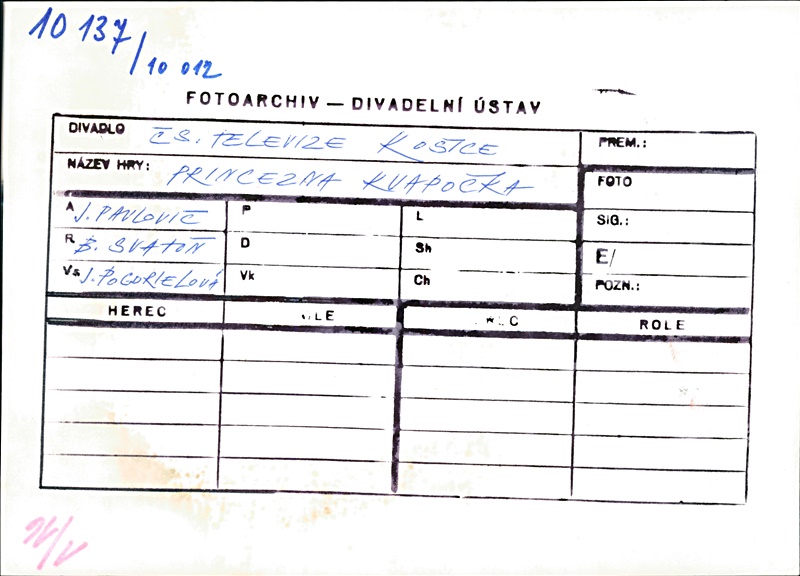 10 137/10 012
FOTOARCHIV — DIVADELNÍ ÚSTAV
DIVADLO ČS. TELEVIZE KOŠICE PREM.:
NÁZEV HRY: PRINCEZNA KVAPOČKA FOTO
A J. PAVLOVIČ P L SIG.:
R B. SVATOŇ D Sh E/
Vs J. POGORIELOVÁ Vk Ch POZN.:
HEREC ROLE